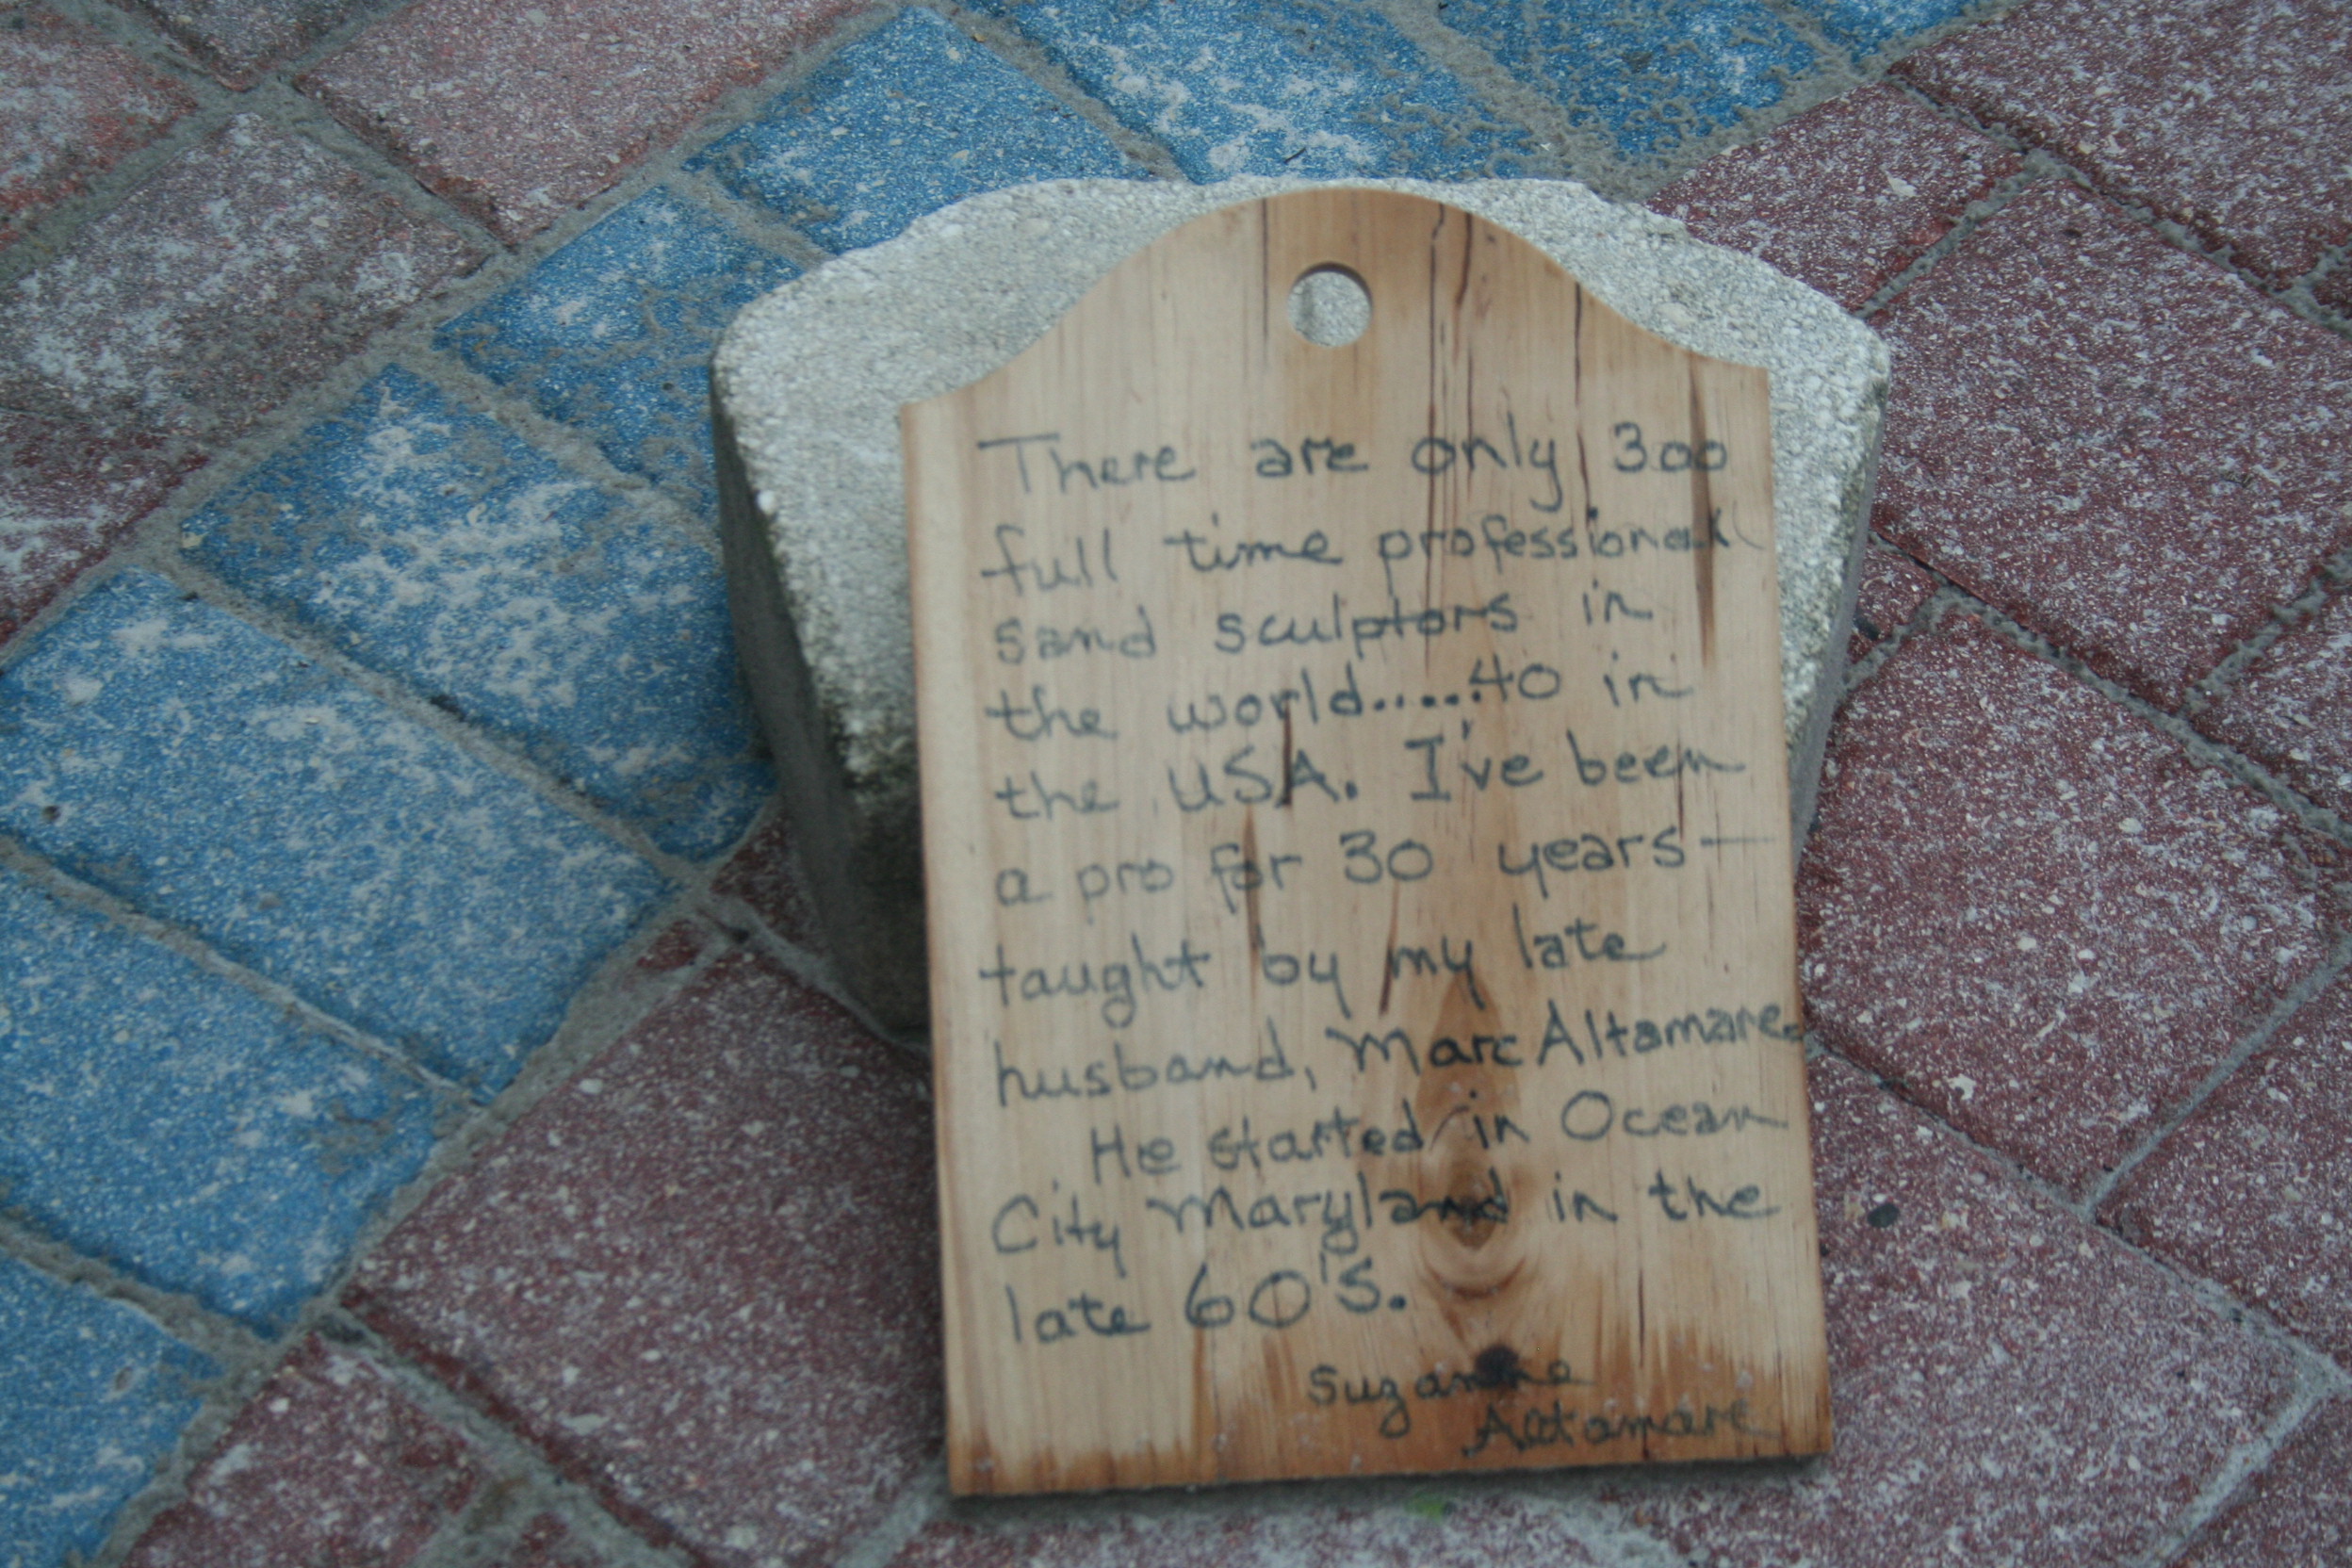 There are only 300
full time professional
sand sculptors in
the world.....40 in
the USA. I've been
a pro for 30 years—
taught by my late
husband, Marc Altamare.
He started in Ocean
City Maryland in the
late 60's.
Suzanne
Altamare